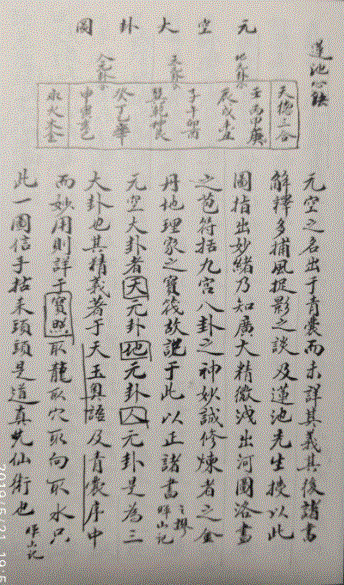 蓮池心訣
元空大卦圖
天地人三合
地元卦
壬丙甲庚
辰戌丑未
天元卦
子午卯酉
乾坤艮巽
人元卦
癸丁乙辛
申寅巳亥
水火木金
元空之名出于青囊而未詳其義其後諸書
解釋多捕風捉影之談及蓮池先生授以此
圖指出妙緒乃知廣大精微洩出河圖洛書
之苞符括九宮八卦之神妙誠修煉者之金
丹地理家之寶筏故說于此以正諸書之謬
元空大卦者天元卦地元卦人元卦是為三
大卦也其精義著于天玉奧語及青囊序中
而妙用則詳于寶照取龍取穴取向取水只
此一圖信手拈來頭頭是道真先仙術也
2019/5/21 19:5